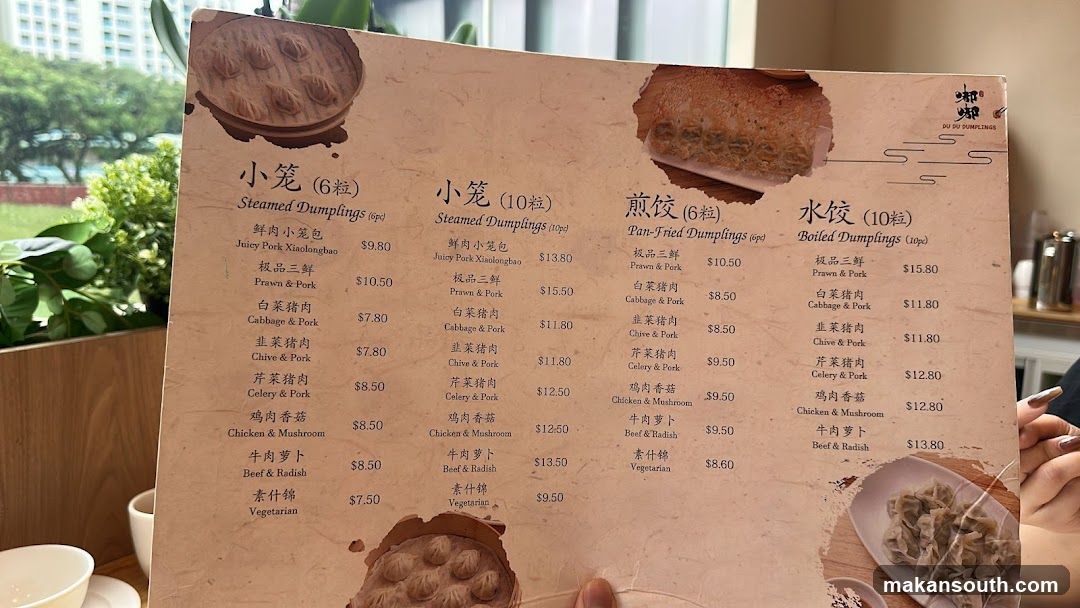 嘟嘟
DU DU DUMPLINGS
小笼 (6粒)
Steamed Dumplings (6pc)
鲜肉小笼包
Juicy Pork Xiaolongbao $9.80
极品三鲜
Prawn & Pork $10.50
白菜猪肉
Cabbage & Pork $7.80
韭菜猪肉
Chive & Pork $7.80
芹菜猪肉
Celery & Pork $8.50
鸡肉香菇
Chicken & Mushroom $8.50
牛肉萝卜
Beef & Radish $8.50
素什锦
Vegetarian $7.50
小笼 (10粒)
Steamed Dumplings (10pc)
鲜肉小笼包
Juicy Pork Xiaolongbao $13.80
极品三鲜
Prawn & Pork $15.50
白菜猪肉
Cabbage & Pork $11.80
韭菜猪肉
Chive & Pork $11.80
芹菜猪肉
Celery & Pork $12.50
鸡肉香菇
Chicken & Mushroom $12.50
牛肉萝卜
Beef & Radish $13.50
素什锦
Vegetarian $9.50
煎饺 (6粒)
Pan-Fried Dumplings (6pc)
极品三鲜
Prawn & Pork $10.50
白菜猪肉
Cabbage & Pork $8.50
韭菜猪肉
Chive & Pork $8.50
芹菜猪肉
Celery & Pork $9.50
鸡肉香菇
Chicken & Mushroom $9.50
牛肉萝卜
Beef & Radish $9.50
素什锦
Vegetarian $8.60
水饺 (10粒)
Boiled Dumplings (10pc)
极品三鲜
Prawn & Pork $15.80
白菜猪肉
Cabbage & Pork $11.80
韭菜猪肉
Chive & Pork $11.80
芹菜猪肉
Celery & Pork $12.80
鸡肉香菇
Chicken & Mushroom $12.80
牛肉萝卜
Beef & Radish $13.80
makansouth.com